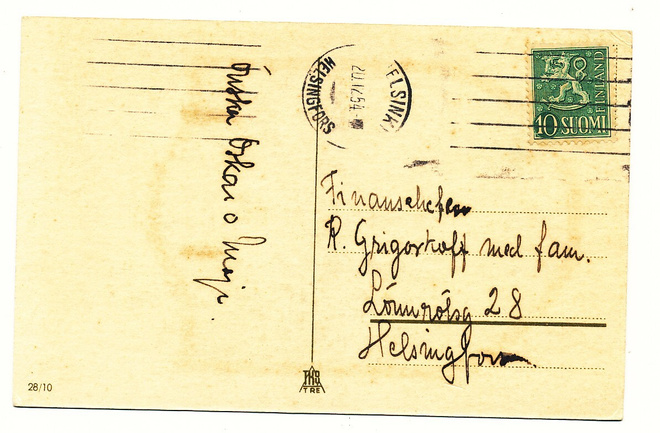 HELSINKI
20.12.54
HELSINGFORS
10 SUOMI
FINLAND
Önskar Oskar o Maj.
Finanschefen
R. Grigorkoff med fam.
Lönnrotsg 28
Helsingfors
28/10
TRE